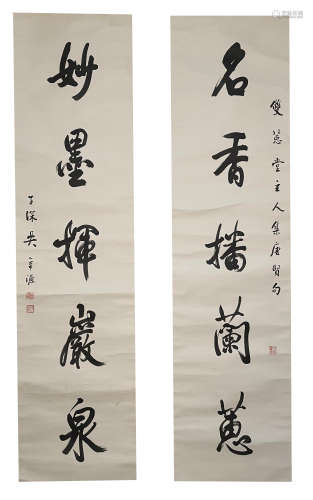 名香播蘭蕙
雙堂主人集唐賢句
妙墨揮巖泉
子深吳華源